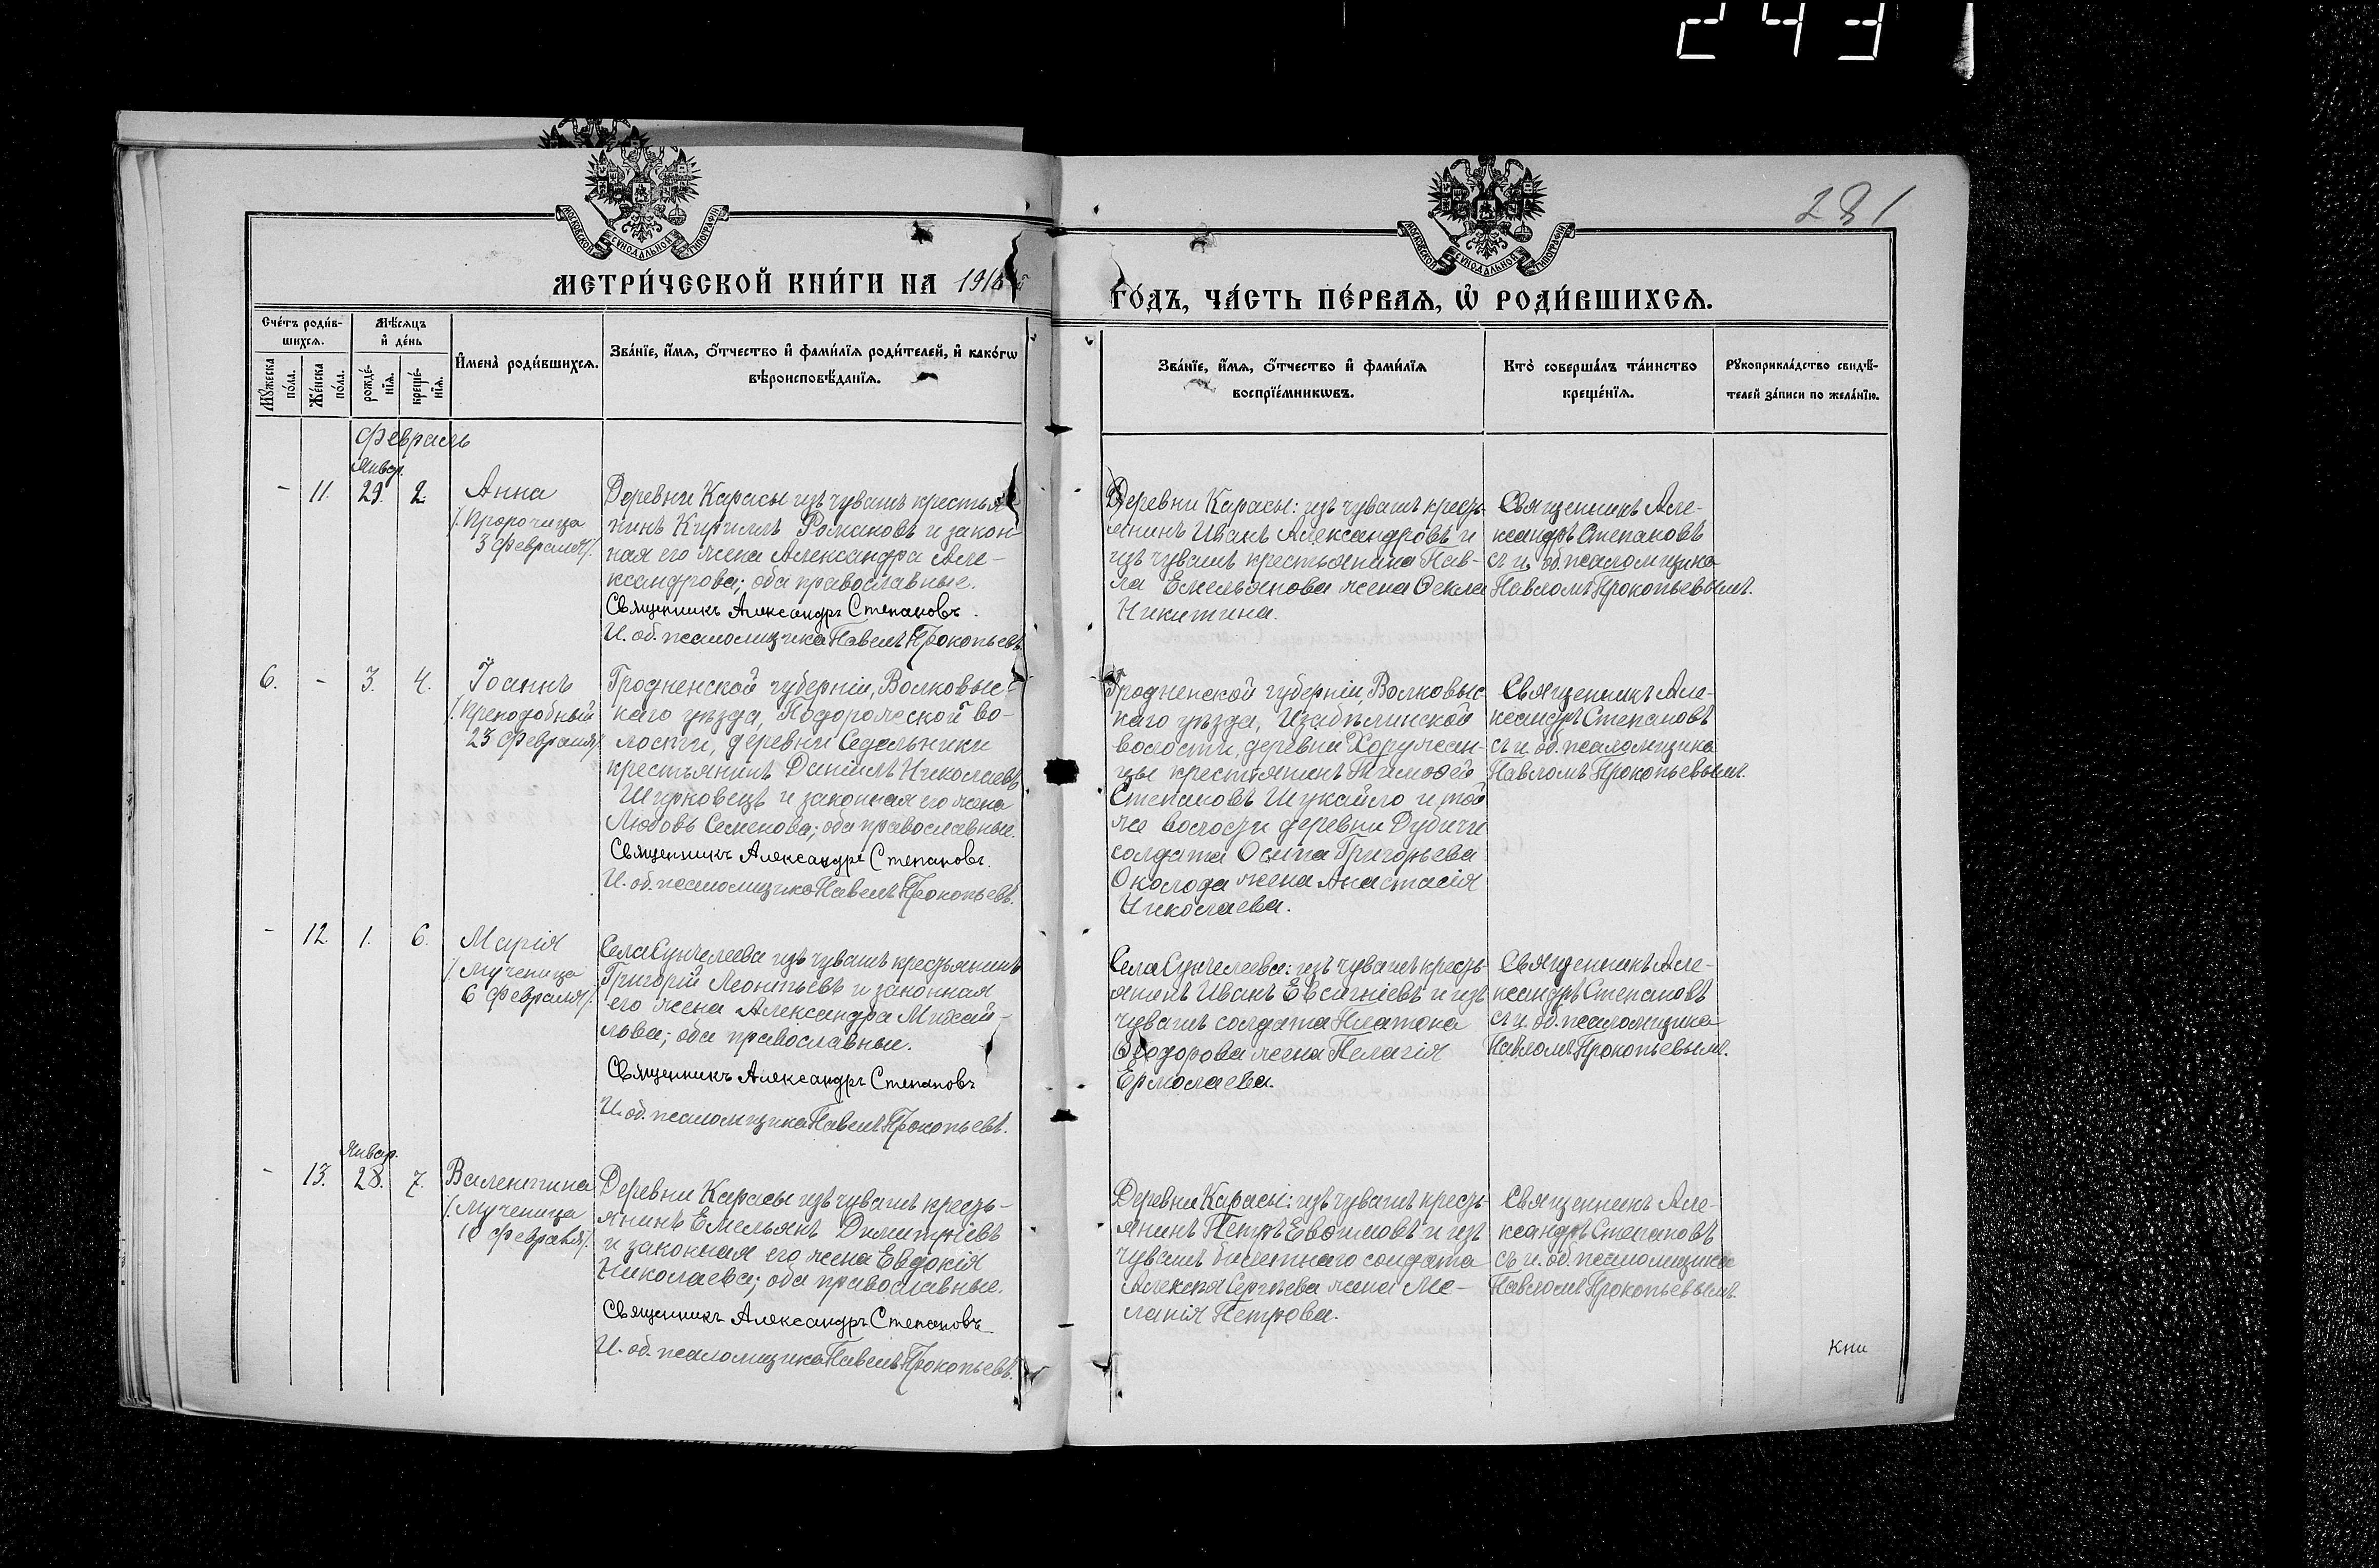 243
281
МОСКОВСКОЙ СѴНОДАЛЬНОЙ ТИПОГРАФІИ
МОСКОВСКОЙ СѴНОДАЛЬНОЙ ТИПОГРАФІИ
МЕТРИ́ЧЕСКОЙ КНИ́ГИ НА 1916
ГО́ДЪ, ЧА́СТЬ ПЕ́РВАѦ, Ѡ҆ РОДИ́ВШИХСѦ.
Сче́тъ роди́в-
шихсѧ.
Мѣ́сѧцъ
и҆ де́нь
Мꙋ́жеска
по́ла.
Же́нска
по́ла.
рожде́-
нїѧ.
креще́-
нїѧ.
И҆мена̀ роди́вшихсѧ.
Зва́нїе, и҆́мѧ, ѻ҆́тчество и҆ фами́лїѧ роди́телей, и҆ како́гѡ
вѣроисповѣ́данїѧ.
Зва́нїе, и҆́мѧ, ѻ҆́тчество и҆ фами́лїѧ
воспрїе́мникѡвъ.
Кто̀ соверша́лъ та́инство
креще́нїѧ.
Рꙋкоприкла́дство свидѣ́-
телей за́писи по жела́нїю.
Февраль
Январ.
- 11. 29. 2.
Анна
/.Пророчица
3 Февраля/.
Деревни Карасы изъ чувашъ крестья
нинъ Кириллъ Романовъ и закон
ная его жена Александра Але-
ксандрова; оба православные.
Священникъ Александръ Степановъ.
И. об. псаломщика Павелъ Прокопьевъ
Деревни Карасы: изъ чувашъ кресть-
янинъ Иванъ Александровъ и
изъ чувашъ крестьянина Пав-
ла Емельянова жена Ѳекла
Никитина.
Священникъ Але-
ксандръ Степановъ
съ и. об. псаломщика
Павломъ Прокопьевымъ.
6. - 3. 4.
Іоаннъ
/.Преподобный
23 Февраля/.
Гродненской губерніи, Волковыс-
каго уѣзда, Подороской во-
лости, деревни Седельники
крестьянинъ Даніилъ Николаевъ
Шурковецъ и законная его жена
Любовь Семенова; оба православные.
Священникъ Александръ Степановъ.
И. об. псаломщика Павелъ Прокопьевъ.
Гродненской губерніи, Волковыс-
каго уѣзда, Изабѣлинской
волости, деревни Хоружан-
цы крестьянинъ Тимоѳей
Степановъ Шукайло и той
же волости деревни Дубичи
солдата Осипа Григорьева
Околода жена Анастасія
Николаева.
Священникъ Але-
ксандръ Степановъ
съ и. об. псаломщика
Павломъ Прокопьевымъ.
- 12. 1. 6.
Марія
/.Мученица
6 Февраля/.
Села Сунчелеева изъ чувашъ крестьянинъ
Григорій Леонтьевъ и законная
его жена Александра Михай-
лова; оба православные.
Священникъ Александръ Степановъ
И. об. псаломщика Павелъ Прокопьевъ.
Села Сунчелеева: изъ чувашъ кресть-
янинъ Иванъ Евсигніевъ и изъ
чувашъ солдата Платона
Ѳеодорова жена Пелагія
Ермолаева.
Священникъ Але-
ксандръ Степановъ
съ и. об. псаломщика
Павломъ Прокопьевымъ.
Январ.
- 13. 28. 7.
Валентина
/.Мученица
10 Февраля/.
Деревни Карасы изъ чувашъ кресть-
янинъ Емельянъ Димитріевъ
и законная его жена Евдокія
Николаева; оба православные.
Священникъ Александръ Степановъ
И. об. псаломщика Павелъ Прокопьевъ.
Деревни Карасы: изъ чувашъ кресть-
янинъ Петръ Евѳимовъ и изъ
чувашъ билетнаго солдата
Алексѣя Сергѣева жена Ме-
ланія Петрова.
Священникъ Але-
ксандръ Степановъ
съ и. об. псаломщика
Павломъ Прокопьевымъ.
Кни